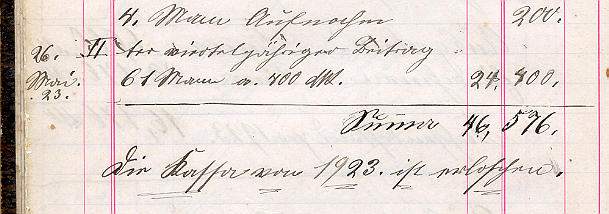 4. Mann Aufnahm 200.
26. II ter vierteljähriger Beitrag
Mai. 61 Mann a. 400 Mk. 24,400.
23.
Summa 46,576.
Die Kassa von 1923. ist erloschen.